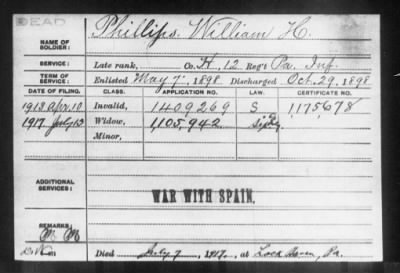 DEAD
NAME OF SOLDIER: Phillips, William H.
SERVICE: Late rank, Co. H, 12 Reg't Pa. Inf.
TERM OF SERVICE: Enlisted May 7, 1898 Discharged Oct. 29, 1898
DATE OF FILING. CLASS. APPLICATION NO. LAW. CERTIFICATE NO.
1913 Apr. 10 Invalid, 1409269 S 1175678
1917 July 13 Widow, 1,105,942
Minor,
ADDITIONAL SERVICES:
WAR WITH SPAIN.
REMARKS:
Died July 7, 1917, at Lock Haven, Pa.